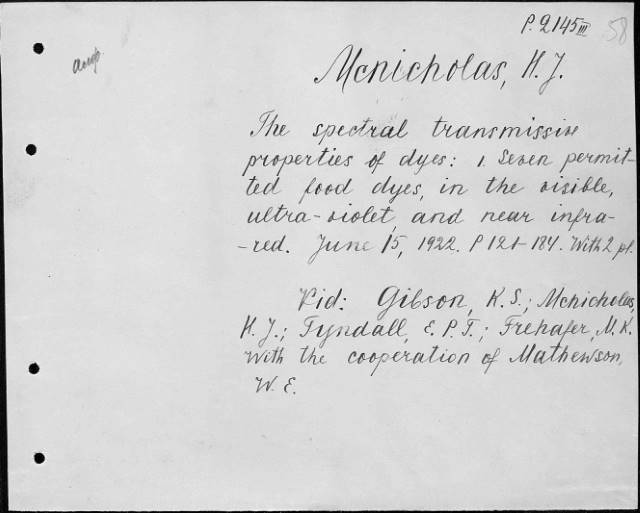 P. 2145 III 58
ангр.
Mcnicholas, H. J.
The spectral transmissive
properties of dyes: 1. Seven permit-
ted food dyes, in the visible,
ultra-violet, and near infra-
-red. June 15, 1922. P 121-184. With 2 pl.
Vid: Gibson, K. S.; Mcnicholas,
H. J.; Tyndall, E. P. T.; Frehafer, M. K.
With the cooperation of Mathewson,
W. E.